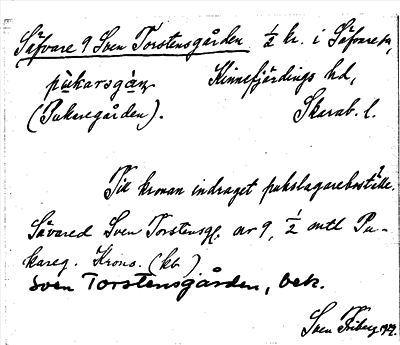 Säfvare 9 Sven Torstensgården ½ kr. i Säfvare sn,
pùkarsgà̱n Kinnefjärdings hd,
(Pukaregården). Skarab. l.
Till kronan indraget pukslagareboställe.
Sävared Sven Torstensg. ar 9, ½ mtl Pu-
kareg. Krono. (kb)
Sven Torstensgården, bek.
Sven Friberg